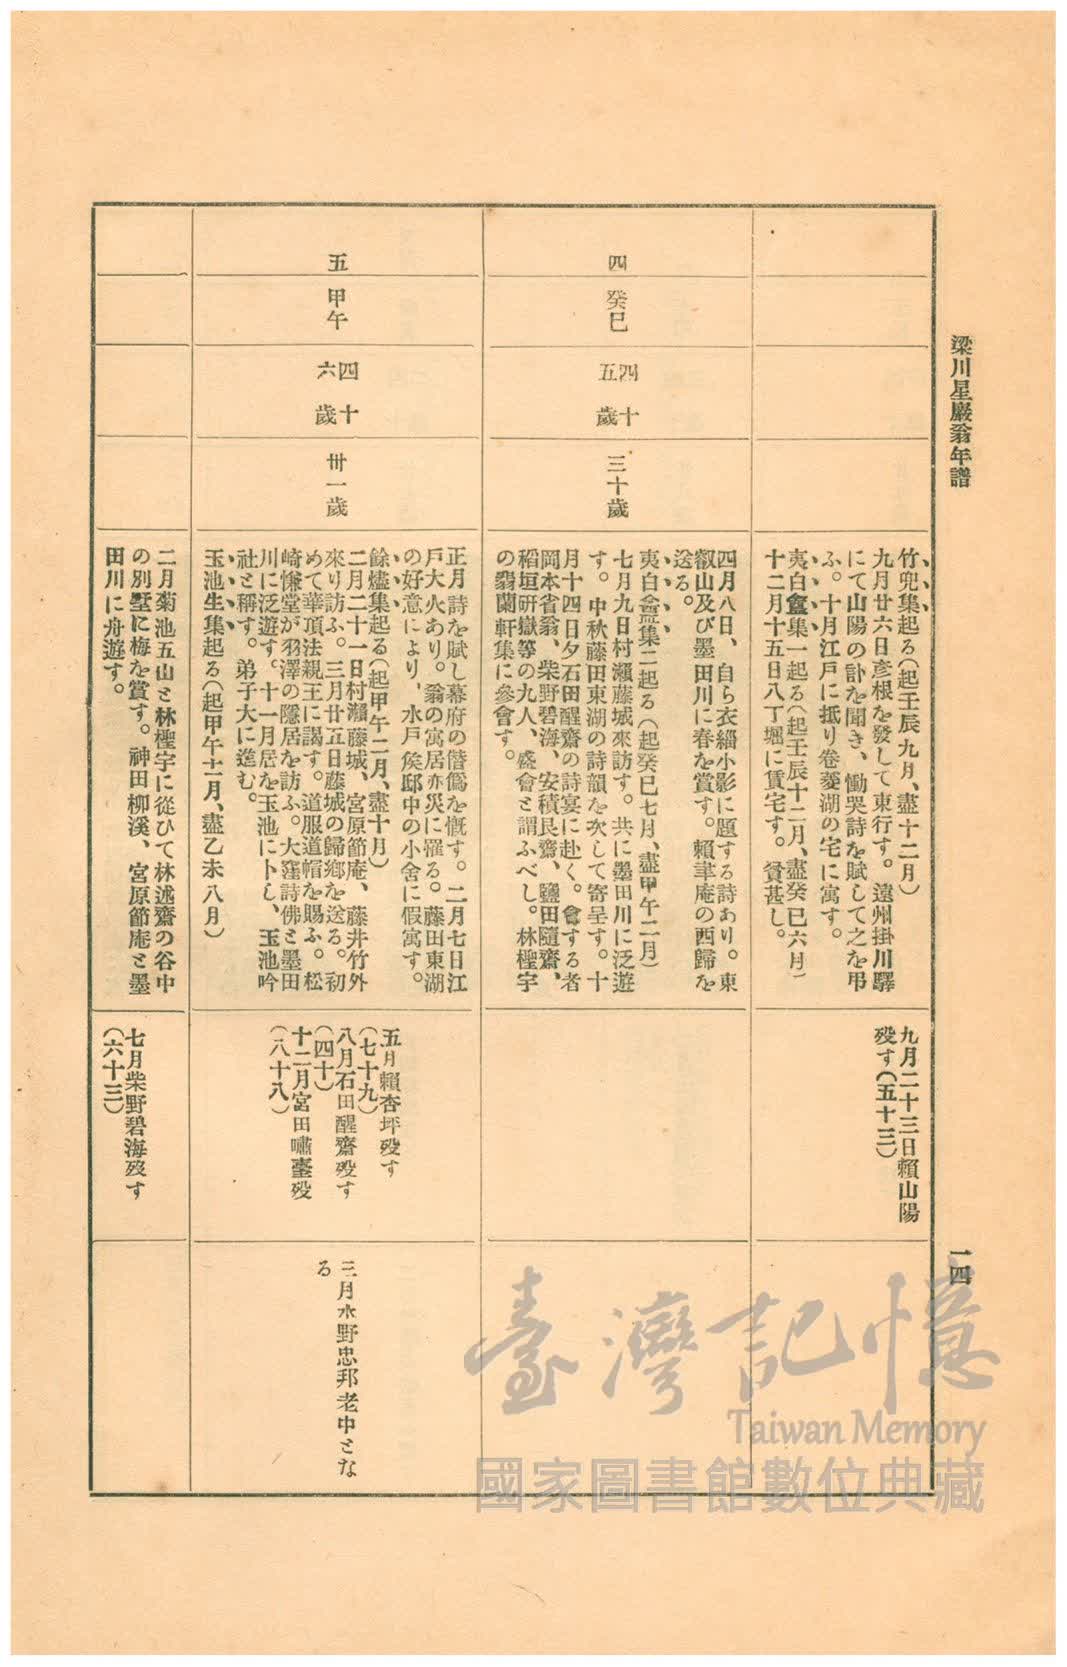 梁川星巖翁年譜
一四
竹兜集起る(起壬辰九月、盡十二月)
九月廿六日彦根を發して東行す。遠州掛川驛
にて山陽の訃を聞き、慟哭詩を賦して之を弔
ふ。十月江戸に抵り卷菱湖の宅に寓す。
夷白盦集一起る(起壬辰十二月、盡癸巳六月)
十二月十五日八丁堀に賃宅す。貧甚し。
九月二十三日賴山陽
歿す(五十三)
四
癸巳
四十五歲
三十歲
四月八日、自ら衣緇小影に題する詩あり。東
叡山及び墨田川に春を賞す。賴聿庵の西歸を
送る。
夷白盦集二起る(起癸巳七月、盡甲午二月)
七月九日村瀨藤城來訪す。共に墨田川に泛遊
す。中秋藤田東湖の詩韻を次して寄呈す。十
月十四日夕石田醒齋の詩宴に赴く。會する者
岡本省翁、柴野碧海、安積艮齋、鹽田隨齋、
稻垣研嶽等の九人、盛會と謂ふべし。林檉宇
の翦蘭軒集に參會す。
五
甲午
四十六歲
卅一歲
正月詩を賦し幕府の僭僞を慨す。二月七日江
戸大火あり。翁の寓居亦災に罹る。藤田東湖
の好意により、水戸侯邸中の小舍に假寓す。
餘燼集起る(起甲午二月、盡十月)
二月二十一日村瀨藤城、宮原節庵、藤井竹外
來り訪ふ。三月廿五日藤城の歸鄉を送る。初
めて華頂法親王に謁す。道服道帽を賜ふ。松
崎慊堂が羽澤の隱居を訪ふ。大窪詩佛と墨田
川に泛遊す。十一月居を玉池に卜し、玉池吟
社と稱す。弟子大に進む。
玉池生集起る(起甲午十一月、盡乙未八月)
五月賴杏坪歿す
(七十九)
八月石田醒齋歿す
(四十)
十二月宮田嘯臺歿
(八十八)
三月水野忠邦老中とな
る
二月菊池五山と林檉宇に從ひて林述齋の谷中
の別墅に梅を賞す。神田柳溪、宮原節庵と墨
田川に舟遊す。
七月柴野碧海歿す
(六十三)
臺灣記憶
Taiwan Memory
國家圖書館數位典藏